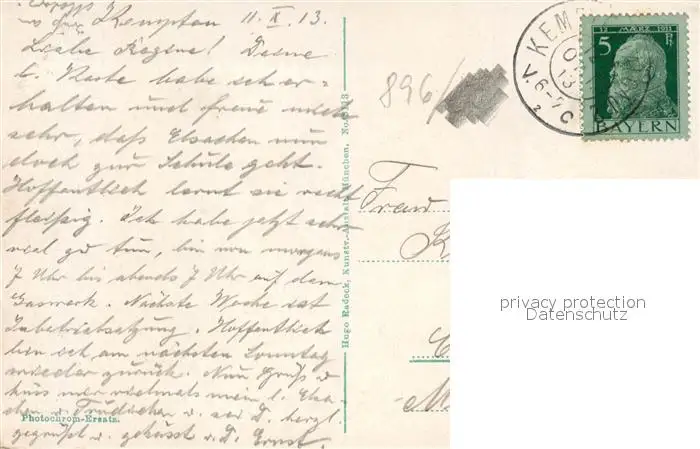 Kempten 11. X. 13.
Liebe Rosine! Deine
l. Karte habe ich er-
halten und freue mich
sehr, daß Elsachen nun
doch zur Schule geht.
Hoffentlich lernt sie recht
fleißig. Ich habe jetzt sehr
viel zu tun, bin von morgens
7 Uhr bis abends 7 Uhr auf dem
Gaswerk. Nächste Woche ist
Inbetriebsetzung. Hoffentlich
bin ich am nächsten Sonntag
wieder zurück. Nun Gruß u
küss mir vielmals mein l. Elsa-
chen u. Trudichen u. sei D. herzl.
gegrüßt u. geküsst v. D. Ernst.
Photochrom-Ersatz.
Hugo Radeck, Kunstv.-Anstalt, München. No.
896/
KEMP
V. 6-7
12. MÄRZ 1911
5 Pf
BAYERN
Frau
privacy protection
Datenschutz